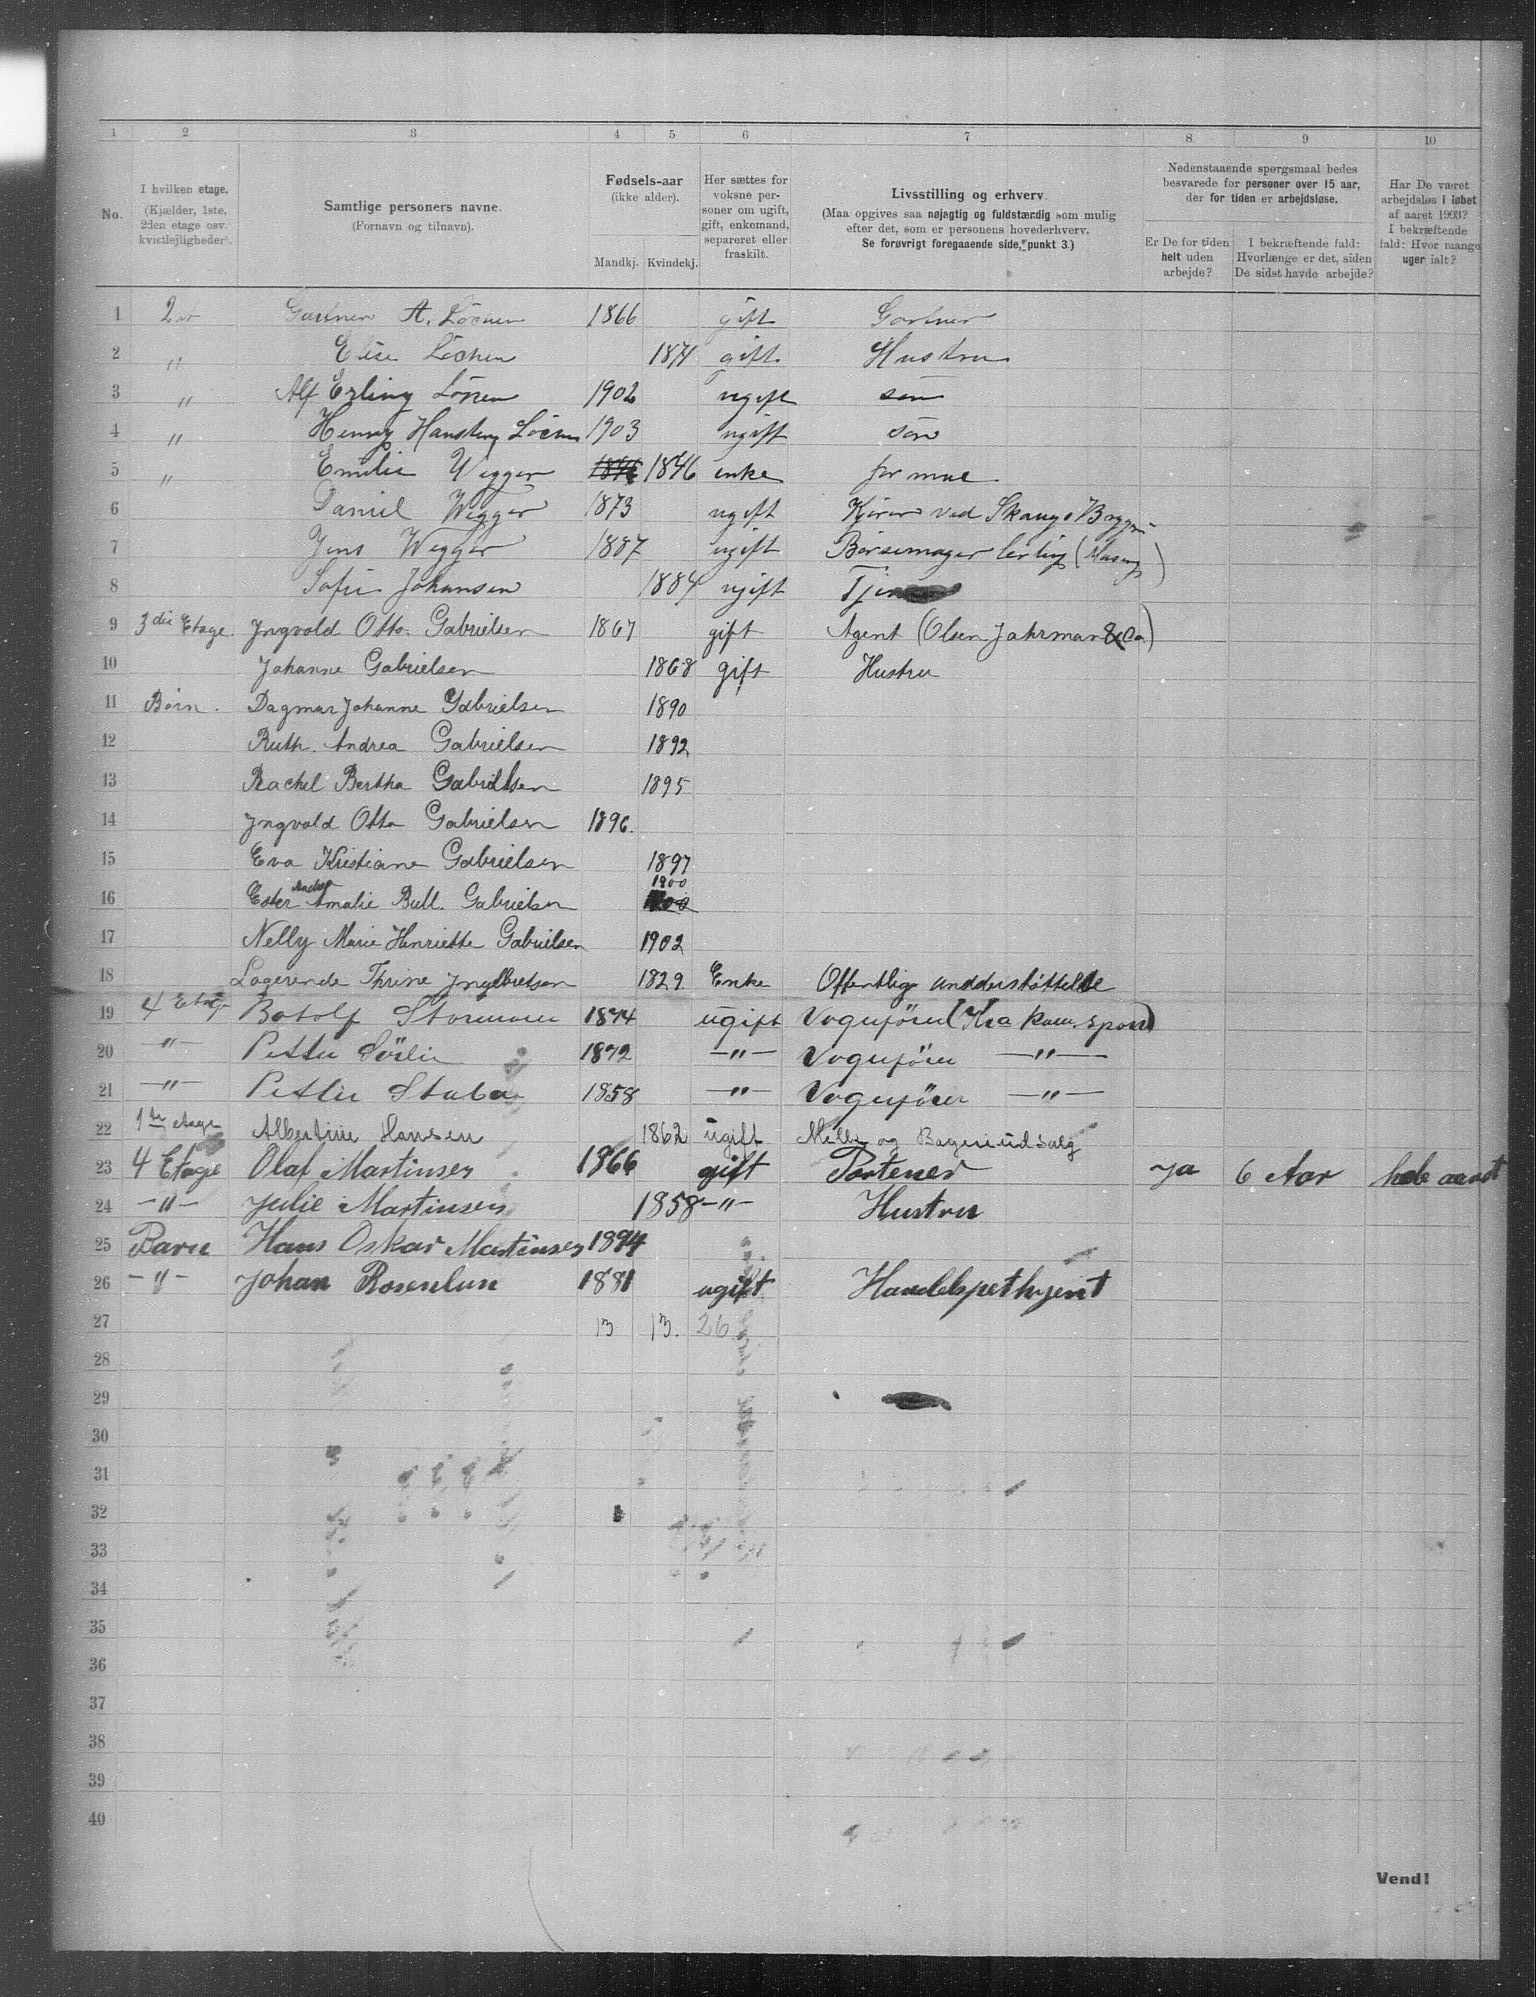 1 2 3 4 5 6 7 8 9 10
No.
I hvilken etage.
(Kjælder, 1ste,
2den etage osv.
kvistlejligheder).
Samtlige personers navne.
(Fornavn og tilnavn).
Fødsels-aar
(ikke alder).
Mandkj. Kvindekj.
Her sættes for
voksne per-
soner om ugift,
gift, enkemand,
separeret eller
fraskilt.
Livsstilling og erhverv.
(Maa opgives saa nøjagtig og fuldstændig som mulig
efter det, som er personens hovederhverv.
Se forøvrigt foregaaende side, punkt 3.)
Nedenstaaende spørgsmaal bedes
besvarede for personer over 15 aar,
der for tiden er arbejdsløse.
Er De for tiden
helt uden
arbejde?
I bekræftende fald:
Hvorlænge er det, siden
De sidst havde arbejde?
Har De været
arbejdsløs i løbet
af aaret 1903?
I bekræftende
fald: Hvor mange
uger ialt?
1 2 A. Löchen 1866 gift Gartner
2 " Elise Löchen 1871 gift Hustru
3 " Alf Erling Löchen 1902 ugift søn
4 " Henry Löchen 1903 ugift søn
5 " Emilie Wegger 1846 enke
6 Daniel Wegger 1873 ugift Kjører ved Brygge
7 Jens Wegger 1887 ugift Børsemager lerling
8 Sofie Johansen 1884 ugift
9 3die Etage. Ingvold Otto. Gabrielsen 1867 gift Agent (Olsen Jahrman & Co)
10 Johanne Gabrielsen 1868 gift Hustru
11 Børn. Dagmar Johanne Gabrielsen 1890
12 Ruth. Andrea Gabrielsen 1892
13 Rachel Bertha Gabrielsen 1895
14 Ingvold Otto Gabrielsen 1896.
15 Eva Kristiane Gabrielsen 1897
16 Ester Andrea Amalie Bull. Gabrielsen 1900
17 Nelly Marie Henriette Gabrielsen 1902
18 Logerende Thrine Ingelbretsen 1829 Enke Offentlig understøttelse
19 4 Etage Botolf 1874 ugift Vognfører (Kra
20 —"— Petter Sörlie 1872 —"— Vognfører —"—
21 —"— Petter 1858 —"— Vognfører —"—
22 1ste etage Albertine Hansen 1862 ugift Melk og Bagerudsalg
23 4 Etage Olaf Martinsen 1866 gift Portener Ja 6 Aar hele aaret
24 —"— Julie Martinsen 1858 —"— Hustru
25 Barn Hans Oskar Martinsen 1894
26 —"— Johan Rosenlun 1881 ugift Handelspethjent
27 13 13. 26
28
29
30
31
32
33
34
35
36
37
38
39
40
Vend!